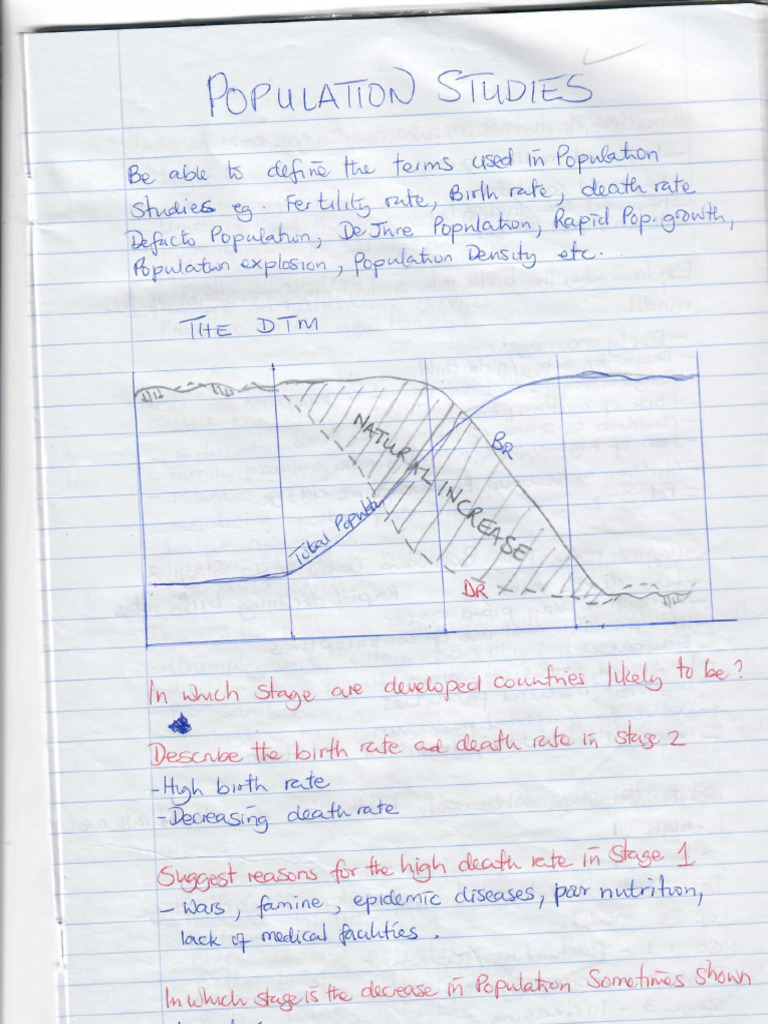 POPULATION STUDIES
Be able to define the terms used in Population
Studies eg. Fertility rate, Birth rate, death rate
Defacto Population, De Jure Population, Rapid Pop. growth,
Population explosion, Population Density etc.
THE DTM
NATURAL INCREASE
BR
Total Population
DR
In which stage are developed countries likely to be?
Describe the birth rate and death rate in stage 2
-High birth rate
-Decreasing death rate
Suggest reasons for the high death rate in Stage 1
- Wars, famine, epidemic diseases, poor nutrition,
lack of medical facilities.
In which stage is the decrease in Population Sometimes shown